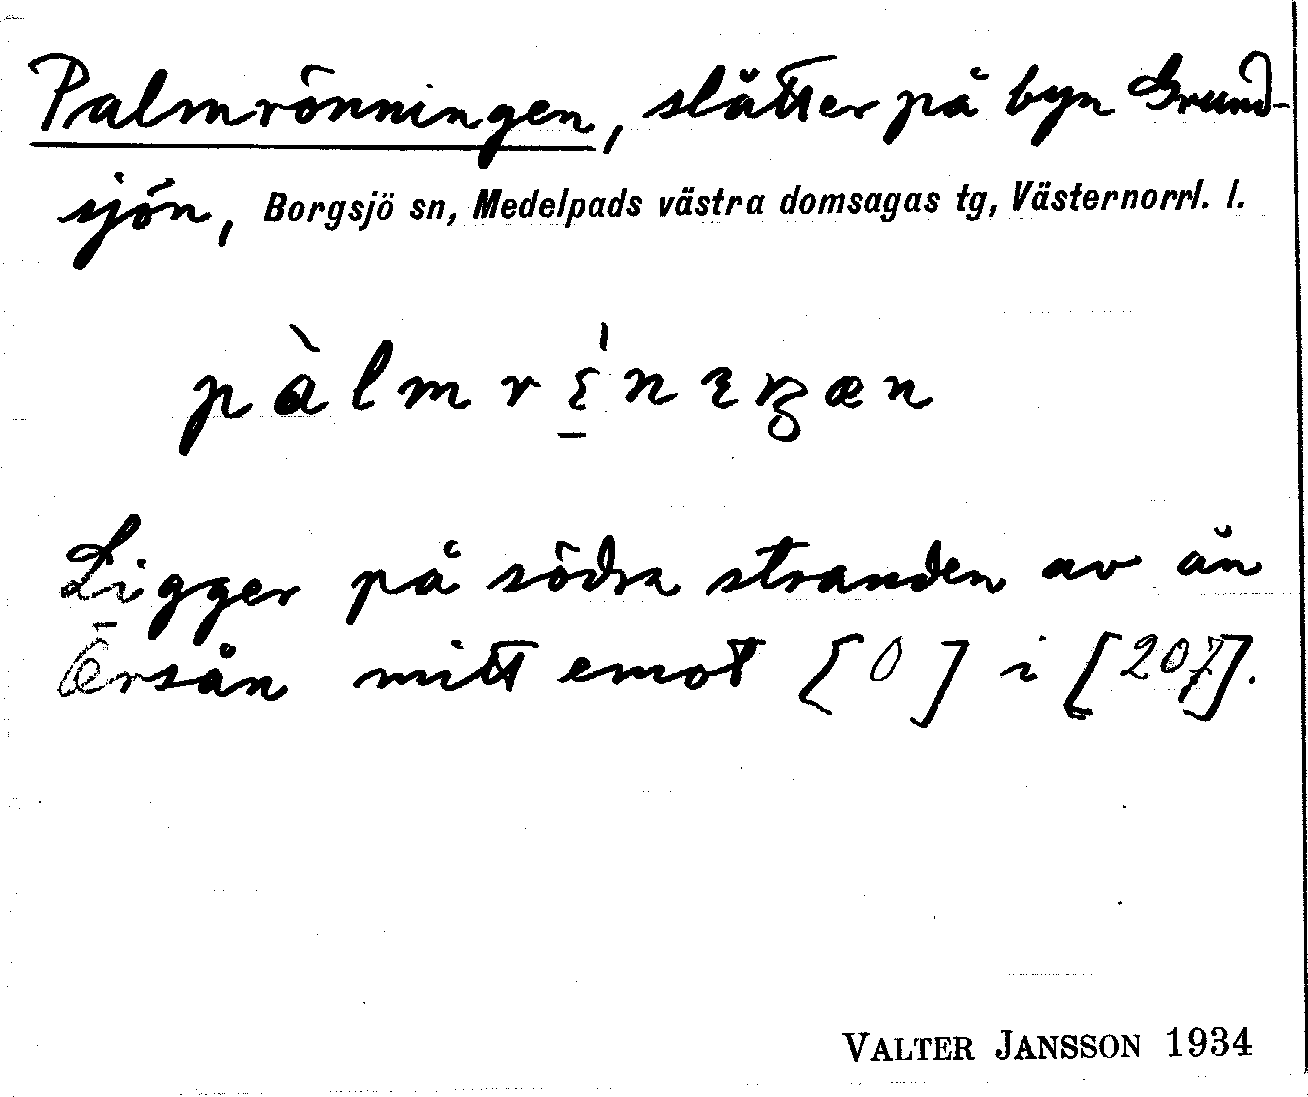 Palmrönningen, slåtter på byn Grund-
sjön, Borgsjö sn, Medelpads västra domsagas tg, Västernorrl. l.
Ligger på södra stranden av ån
Örsån mitt emot [0] i [207].
VALTER JANSSON 1934